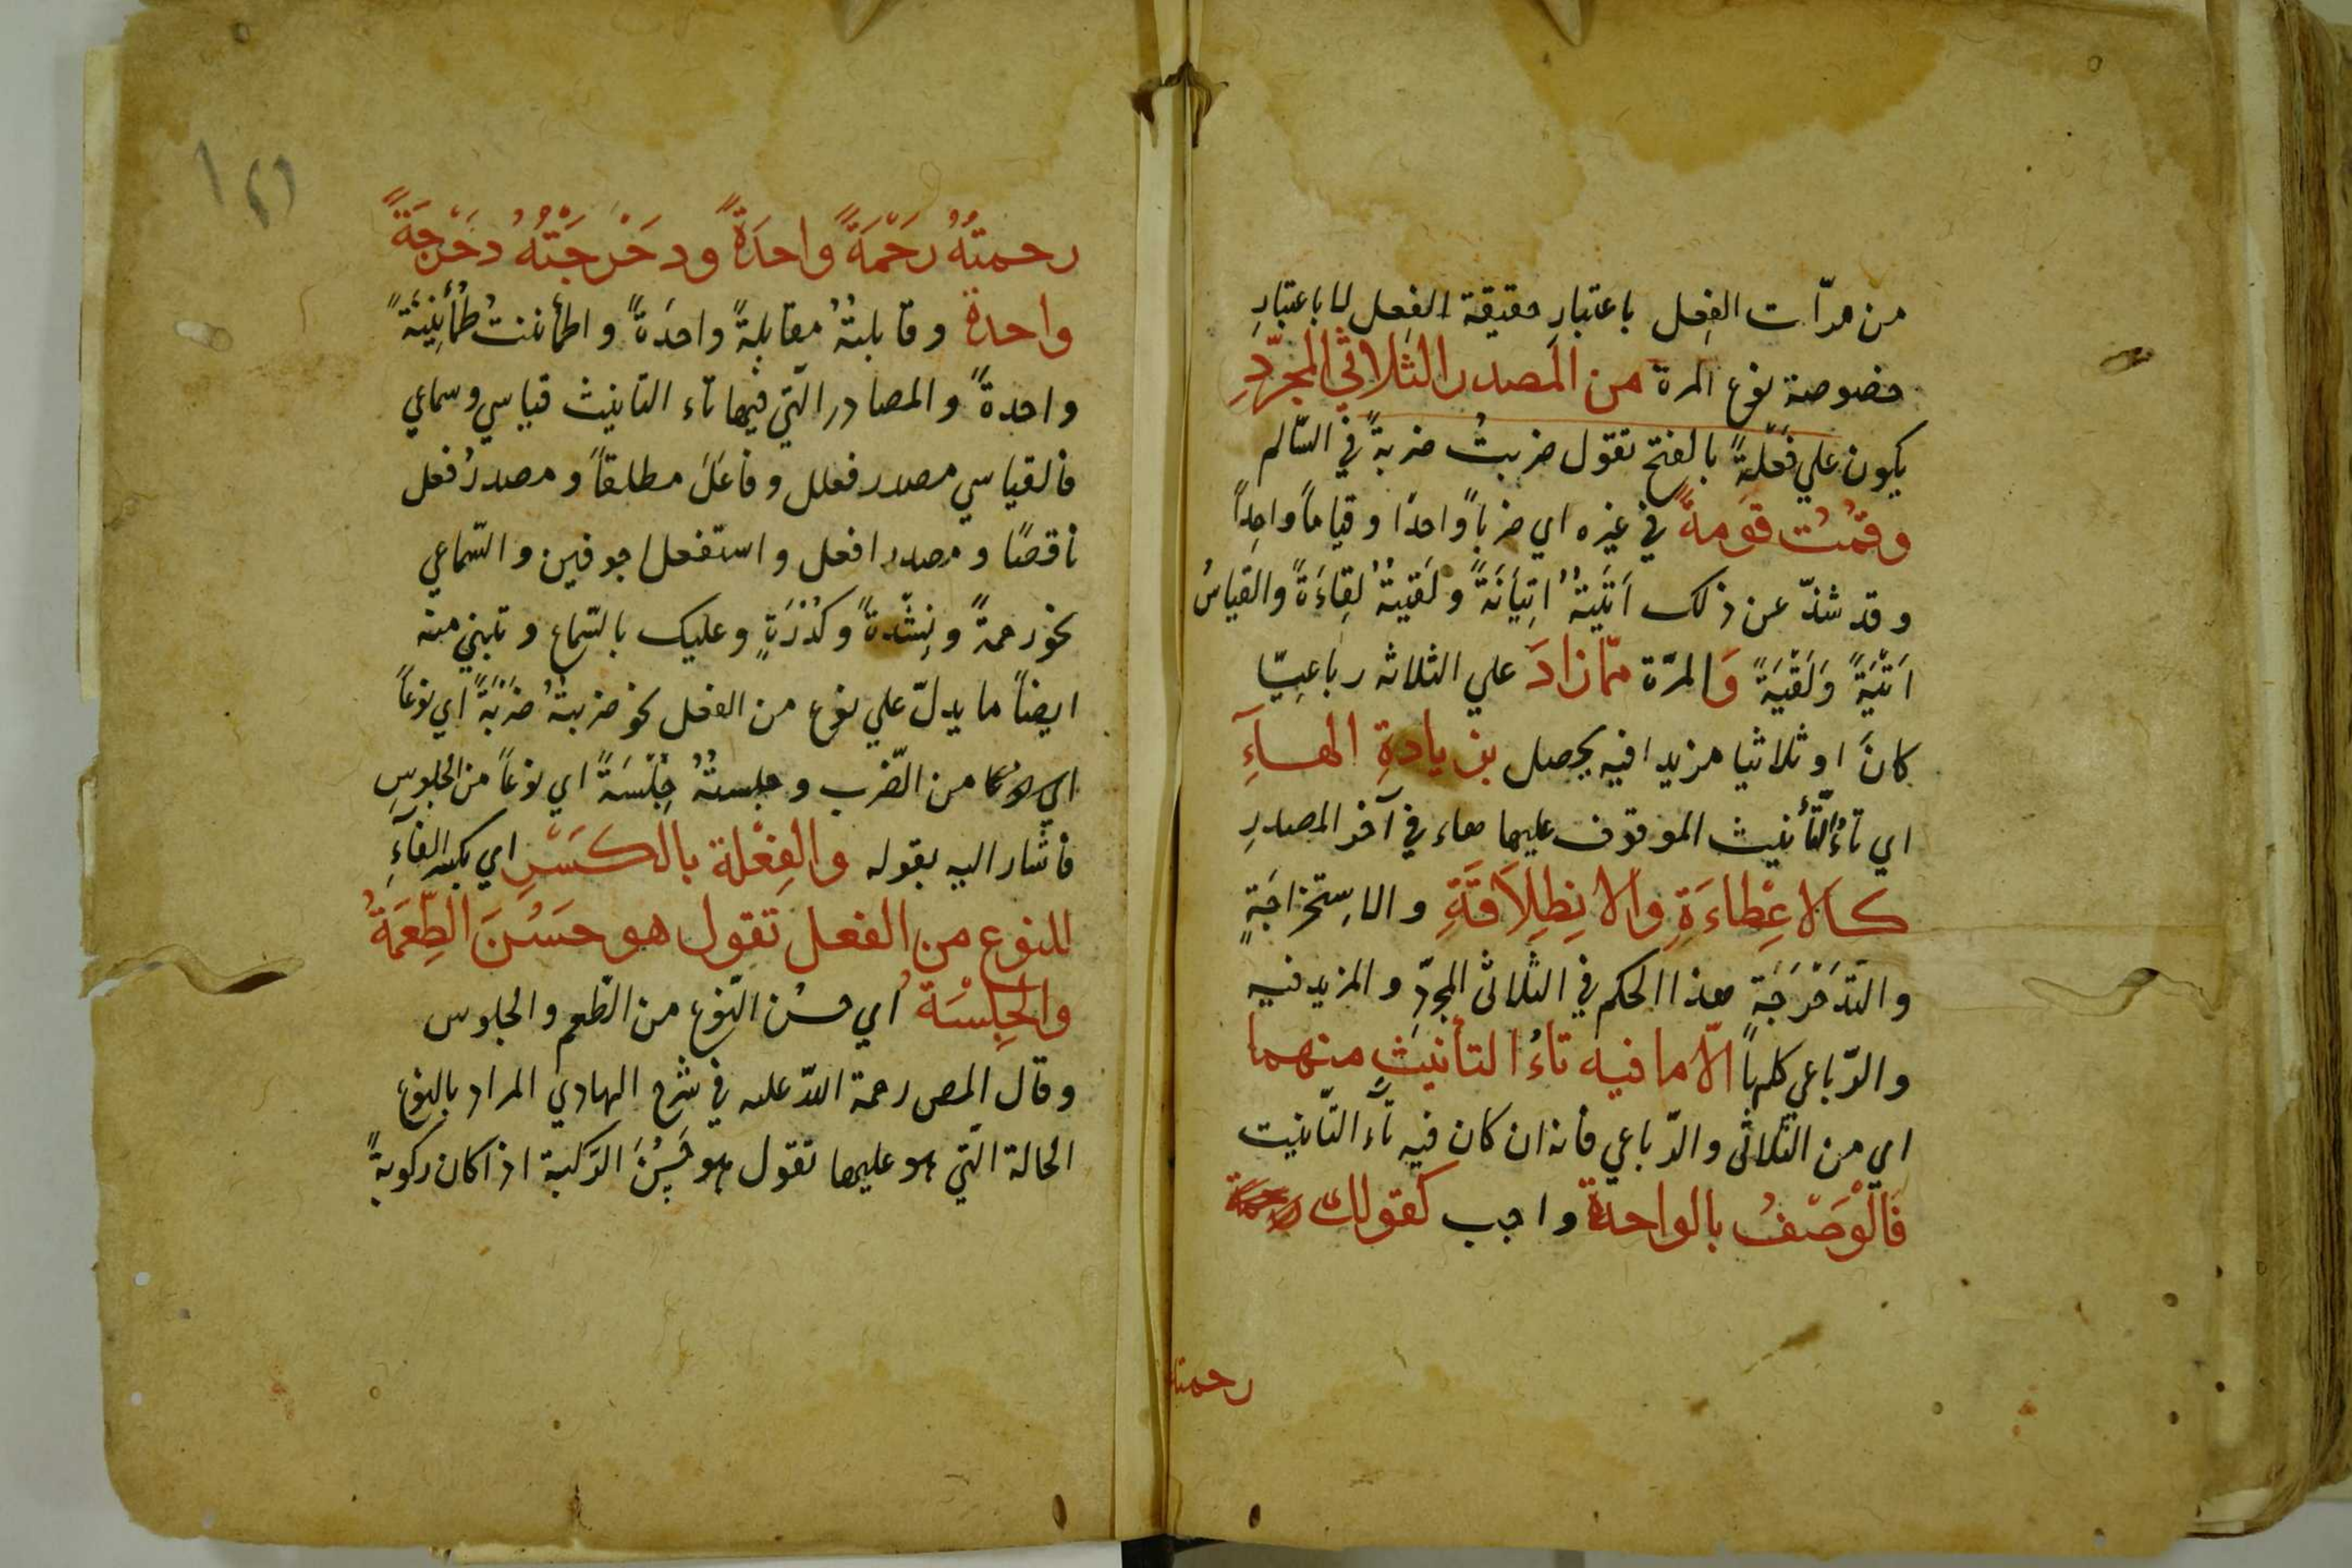 من مرّات الفِعل باعتبارِ حقيقة الفِعل لا باعتبارِ
خصوصة نوع المرة من المصدر الثلاثي المجرّدِ
يكون علي فَعْلَةً بالفتح تقول ضربتُ ضربةً في السّالم
وقُمْتُ قَومةً في غيره اي ضرباً واحدًا وقياماً واحِداً
وقد شذّ عن ذلك اَتَيتهُ اِتيَانَةً ولَقيتهُ لِقاءَةً والقياسُ
اَتْيَةً وَلَقْيَةً وَالمرّة ممّا زادَ علي الثلاثه رباعِيّا
كانَ او ثلاثيا مزيدا فيه يحصل بزيادةِ الهآءِ
اي تاءُ التّأنيث الموقوف عليها هاء في آخر المصدرِ
كالاعِطاءَةِ والانِطِلاَقَةِ والاِستخراجَةٍ
والتّدَحْرَجَة هذا الحكم في الثّلاثى المجرّدِ والمزيد فيه
والرّباعى كلهاً الاّ ما فيه تاءُ التأنيثِ منهما
اي من الثّلاثى والرّباعي فانه ان كان فيه تآء التّانيت
فَالْوَصْفُ بالواحدة واجب كقولك
رحمته
رحمتهُ رَحْمَةً واحدَةً ودحْرَجْتُهُ دحْرجَةً
واحدة وقابلتهُ مقابلةً واحدَةً واطمأننتُ طُمَأْنِينَةً
واحدةً والمصادر الّتي فيها تآء التانيث قياسي وسماعي
فالقياسي مصدر فعلل وفاعَلَ مطلقاً ومصدرُ فعل
ناقصًا ومصدر افعل واستفعل اجوفين والسّماعي
نحو رحمةً ونِشْدةً وكُدْرَةٍ وعليك بالسّماع وتبني منه
ايضاً ما يدلّ علي نوع من الفعل نحو ضربتهُ ضَرْبَةً اي نوعاً
من الضّرب وجلستهُ جِلْسَةً اي نوعاً من الجلوسِ
فاشار اليه بقوله والفِعْلة بالكَسْرِ اي بكسر الفآءِ
للنوع من الفعل تقول هو حَسُنَ الطِّعمَةُ
والجِلْسَةُ اي حسُن النّوع من الطّعم والجلوس
وقال المص رحمة اللّه عليه في شرح الهادي المراد بالنوع
الحالة الّتي هو عليها تقول هو حَسُنَ الرّكبة اذا كان ركوبهً